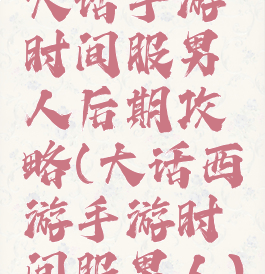 大话手游
时间服男
人后期攻
略(大话西
游手游时
间服男人)